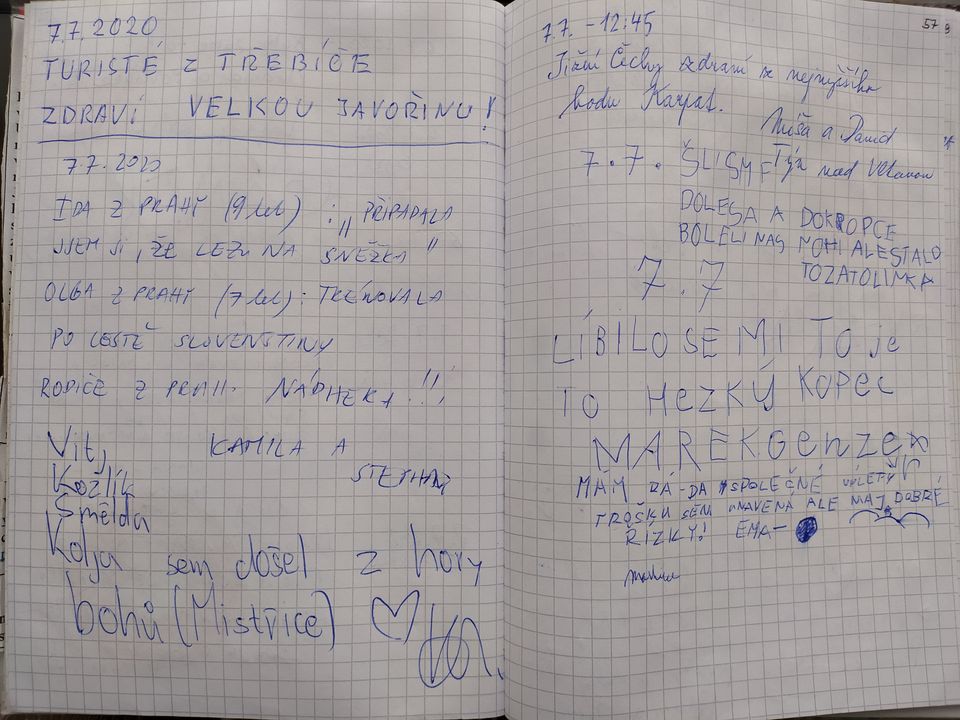 7.7.2020
TURISTÉ Z TŘEBÍČE
ZDRAVÍ VELKOU JAVOŘINU!
7.7.2020
IDA Z PRAHY (9 let) : „PŘIPADALA
JSEM SI, ŽE LEZU NA SNĚŽKU"
OLGA Z PRAHY (7 let): TRÉNOVALA
PO CESTĚ SLOVENŠTINY
RODIČE Z PRAH. NÁDHERA!!!
Vít, KAMILA A
Kožlík
Šmelda
Kolja sem došel z hory
bohů (Mistřice)
57
7.7. - 12:45
Jižní Čechy zdraví z nejvyššího
bodu Karpat.
Míša a David
Týn nad Vltavou
7.7. ŠLISME
DOLESA A DOKOPCE
BOLELI NAS NOHI ALESTALO
TOZATOLINKA
7.7
LÍBILO SE MI TO je
TO HEZKÝ KOPEC
MAREK Genzer
MÁM RÁ-DA SPOLEČNÉ VÝLETY
TROŠKU SEM UNAVENÁ ALE MAJ DOBRÉ
ŘÍZKY! EMA-